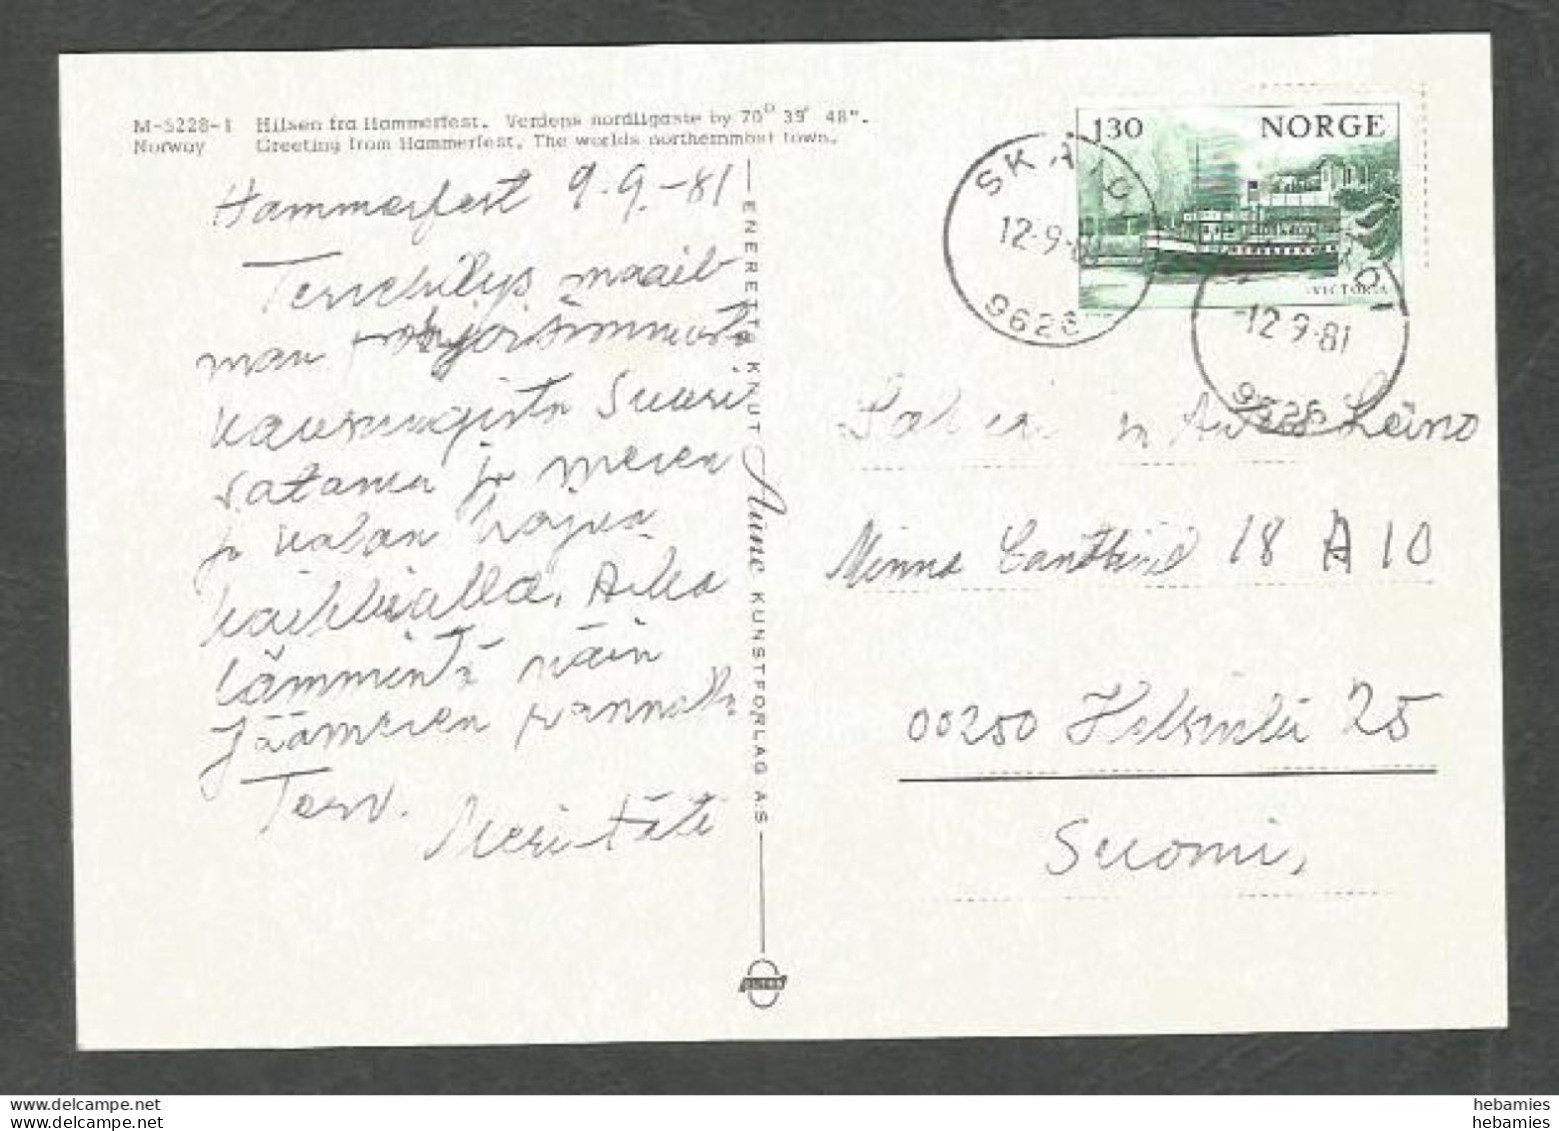 M-5228-1 Hilsen fra Hammerfest. Verdens nordligaste by 70° 39' 48".
Norway Greeting from Hammerfest. The worlds northernmost town.
Hammerfest 9.9.-81
Tervehdys maail-
man pohjoisimmasta
kaupungista Suuri
satama ja meren
ja kalan hajua
kaikkialla. Aika
lämmintä näin
Jäämeren rannalla
Terv.
Meri täti
ENERETT KNUT Aune KUNSTFORLAG A.S
130 NORGE
VICTORIA
SKAIDI
12-9-81
9626
12-9-81
9626
Leino
Minna Canthink 18 A 10
00250 Helsinki 25
Suomi,
hebamies
hebamies
hebamies
hebamies